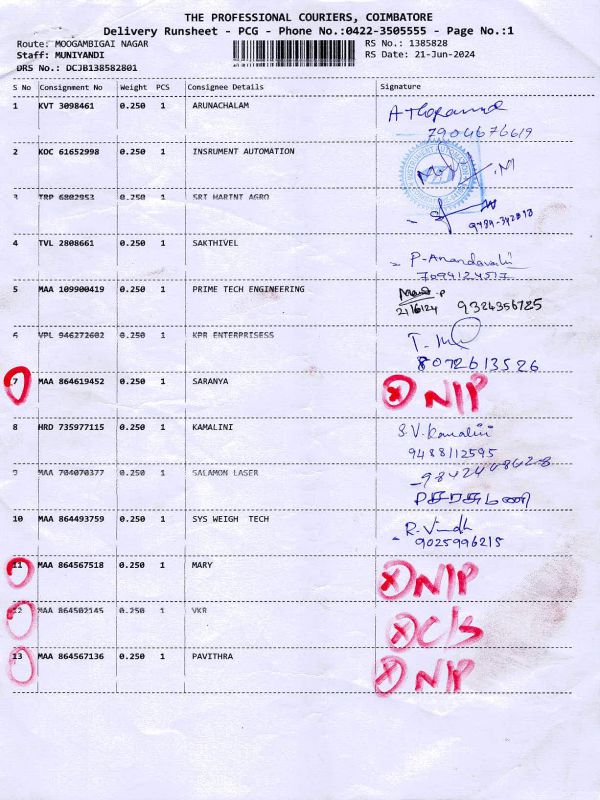 THE PROFESSIONAL COURIERS, COIMBATORE
Delivery Runsheet - PCG - Phone No.:0422-3505555 - Page No.:1
Route: MOOGAMBIGAI NAGAR RS No.: 1385828
Staff: MUNIYANDI RS Date: 21-Jun-2024
DRS No.: DCJB138582801
S No Consignment No Weight PCS Consignee Details Signature
1 KVT 3098461 0.250 1 ARUNACHALAM
7904676619
2 KOC 61652998 0.250 1 INSRUMENT AUTOMATION
3 TRP 6802953 0.250 1 SRI HARINI AGRO
9789-342818
4 TVL 2808661 0.250 1 SAKTHIVEL
P-Anandavalli
7094124517
5 MAA 109900419 0.250 1 PRIME TECH ENGINEERING
21/6/24 9324356725
6 VPL 946272602 0.250 1 KPR ENTERPRISESS
8072613526
7 MAA 864619452 0.250 1 SARANYA X N/P
8 HRD 735977115 0.250 1 KAMALINI S.V.Kamalini
9488112595
9 MAA 704070377 0.250 1 SALAMON LASER
10 MAA 864493759 0.250 1 SYS WEIGH TECH
9025996215
11 MAA 864567518 0.250 1 MARY X N/P
12 MAA 864502145 0.250 1 VKR X C/S
13 MAA 864567136 0.250 1 PAVITHRA X N/P